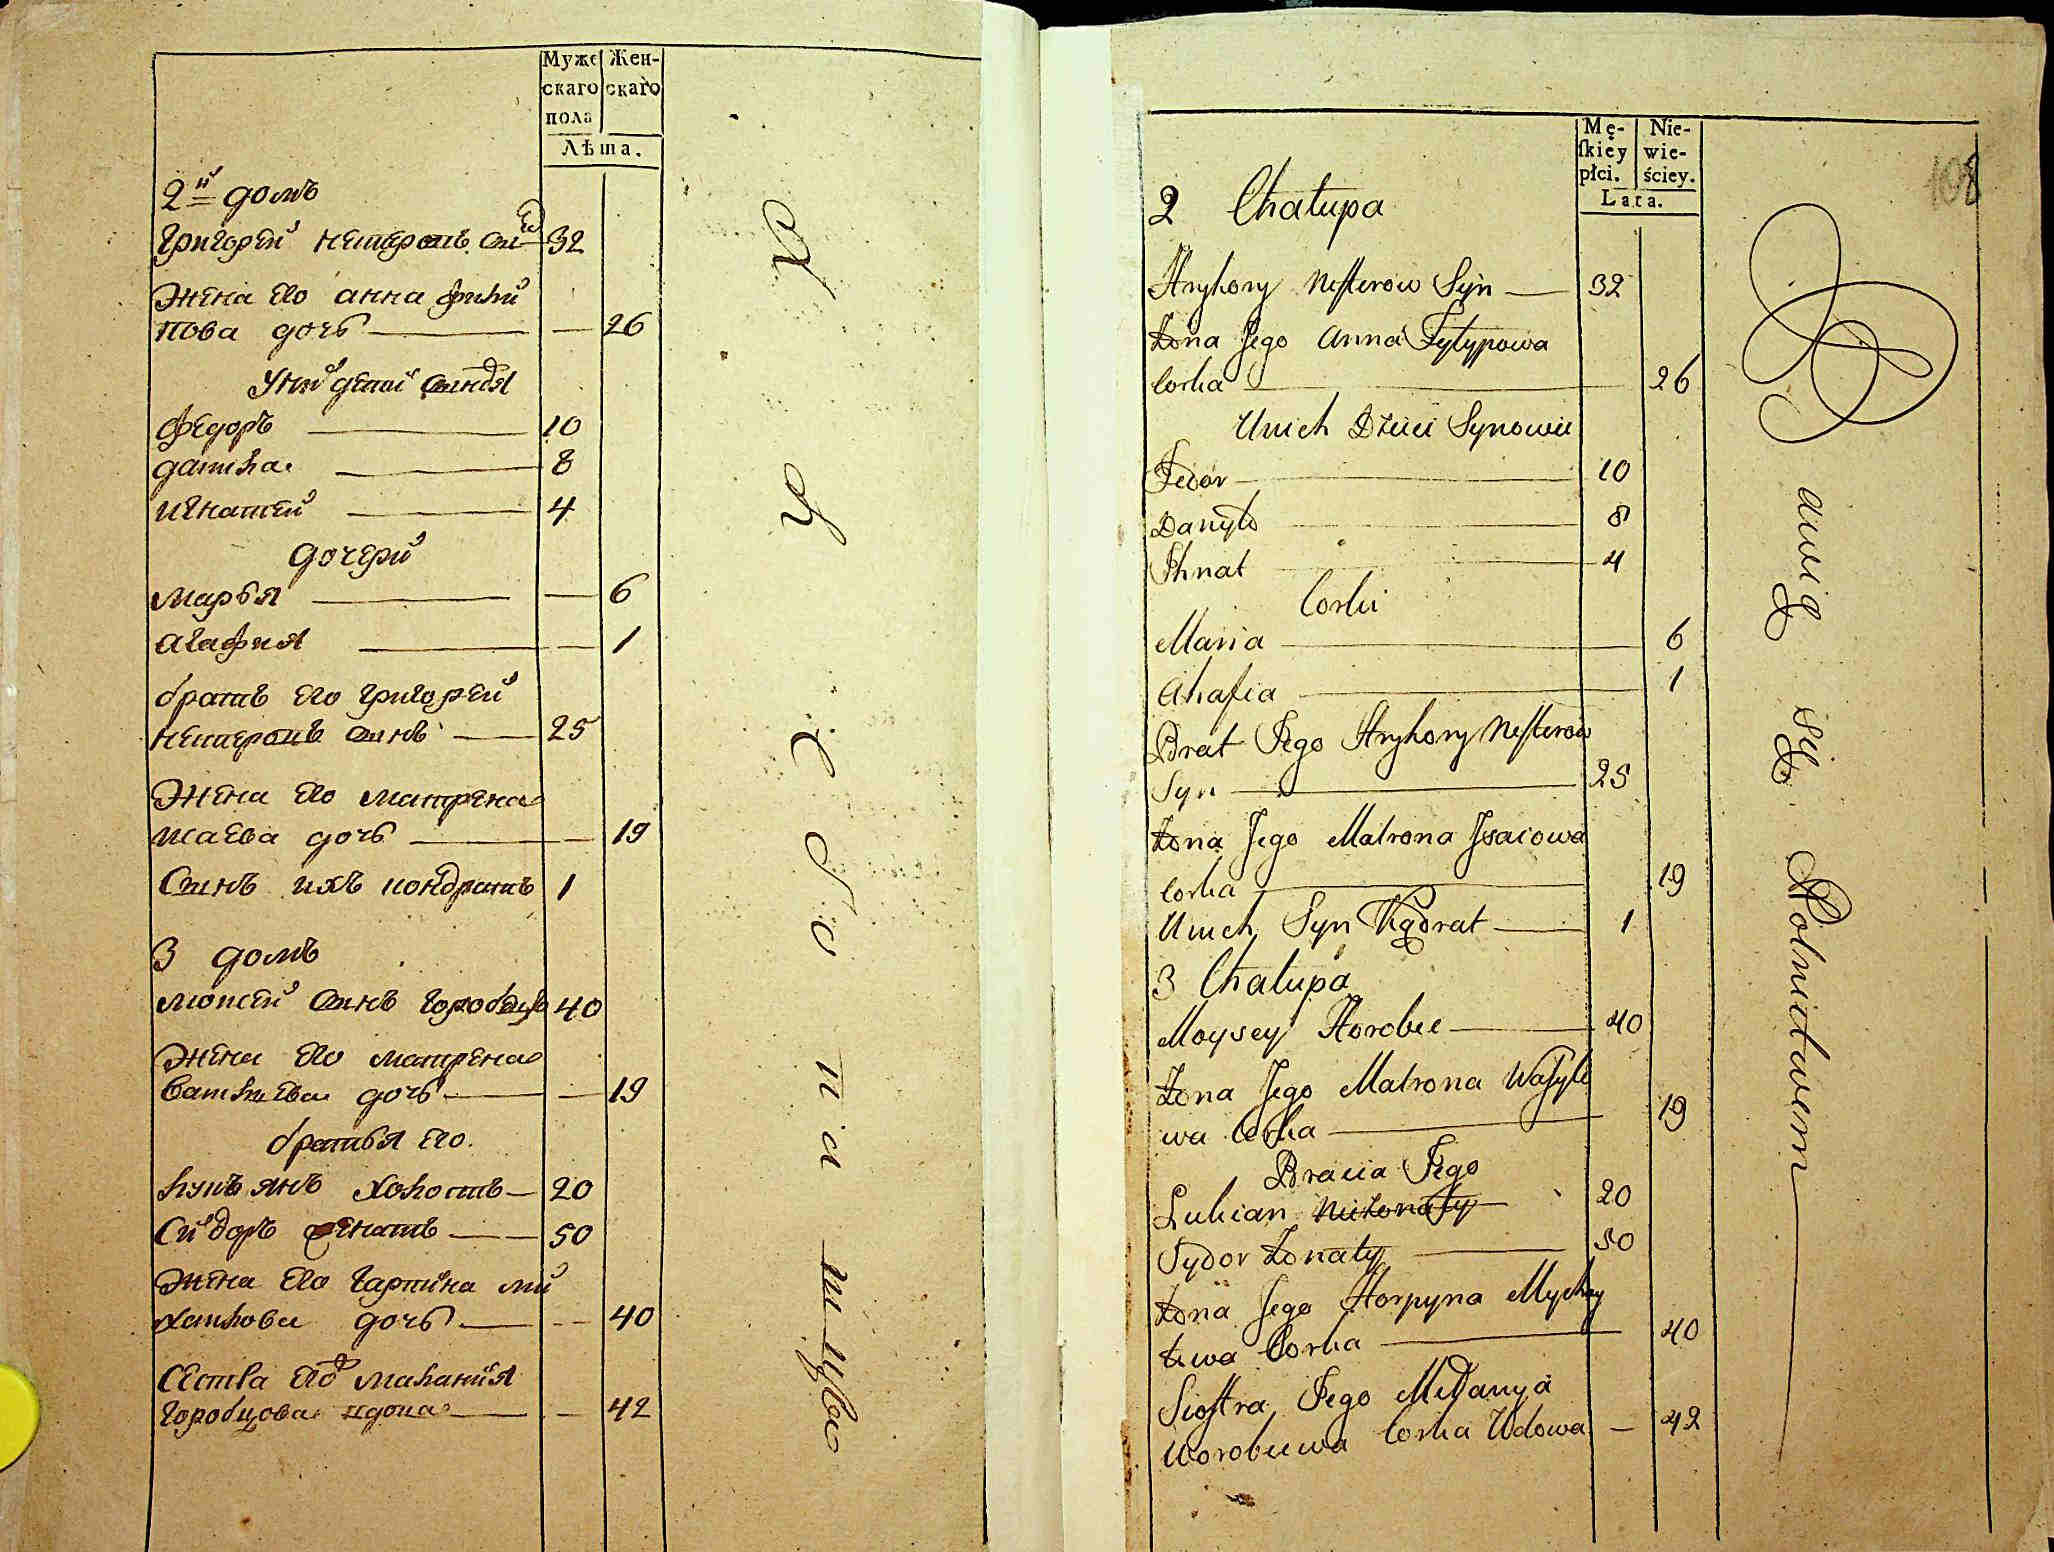 Муже Жен-
скаго скаго
пола
Лѣта.
2й домъ
Григорей нестеровъ сынъ 32
Жена его анна фили
пова дочь 26
У них дети сыновя
Федоръ 10
данила 8
игнатей 4
дочери
марья 6
агафия 1
братъ его григорей
нестеровъ сынъ 25
Жена его матрена
исаева дочь 19
Сынъ ихъ кондратъ 1
3 домъ
моисей сынъ горобецъ 40
Жена его матрена
василиева дочь 19
братья его
лукъянъ холостъ 20
Сидоръ женатъ 50
Жена его гарпина ми
хайлова дочь 40
Сестра его малания
горобцова вдова 42
Х л е б о п а ш ц ы
Mę- Nie-
ſkiey wie-
płci. ściey.
Lata.
108
2 Chałupa
Hryhory Nesterow Syn 32
Żona Jego Anna Fylypowa
Corka 26
U nich Dzieci Synowie
Fedor 10
Danyło 8
Ihnat 4
Corki
Maria 6
Ahafia 1
Brat Jego Hryhory Nesterow
Syn 25
Żona Jego Matrona Jsaiowa
Corka 19
U nich Syn Kądrat 1
3 Chałupa
Moysey Horobec 40
Żona Jego Matrona Wasyle
wa Corka 19
Bracia Jego
Lukian Nieżonaty 20
Sydor Żonaty 50
Żona Jego Horpyna Mychay
łowa Corka 40
Siostra Jego Mełanya
Worobiewa Corka Wdowa 42
Bawią się Rolnictwem